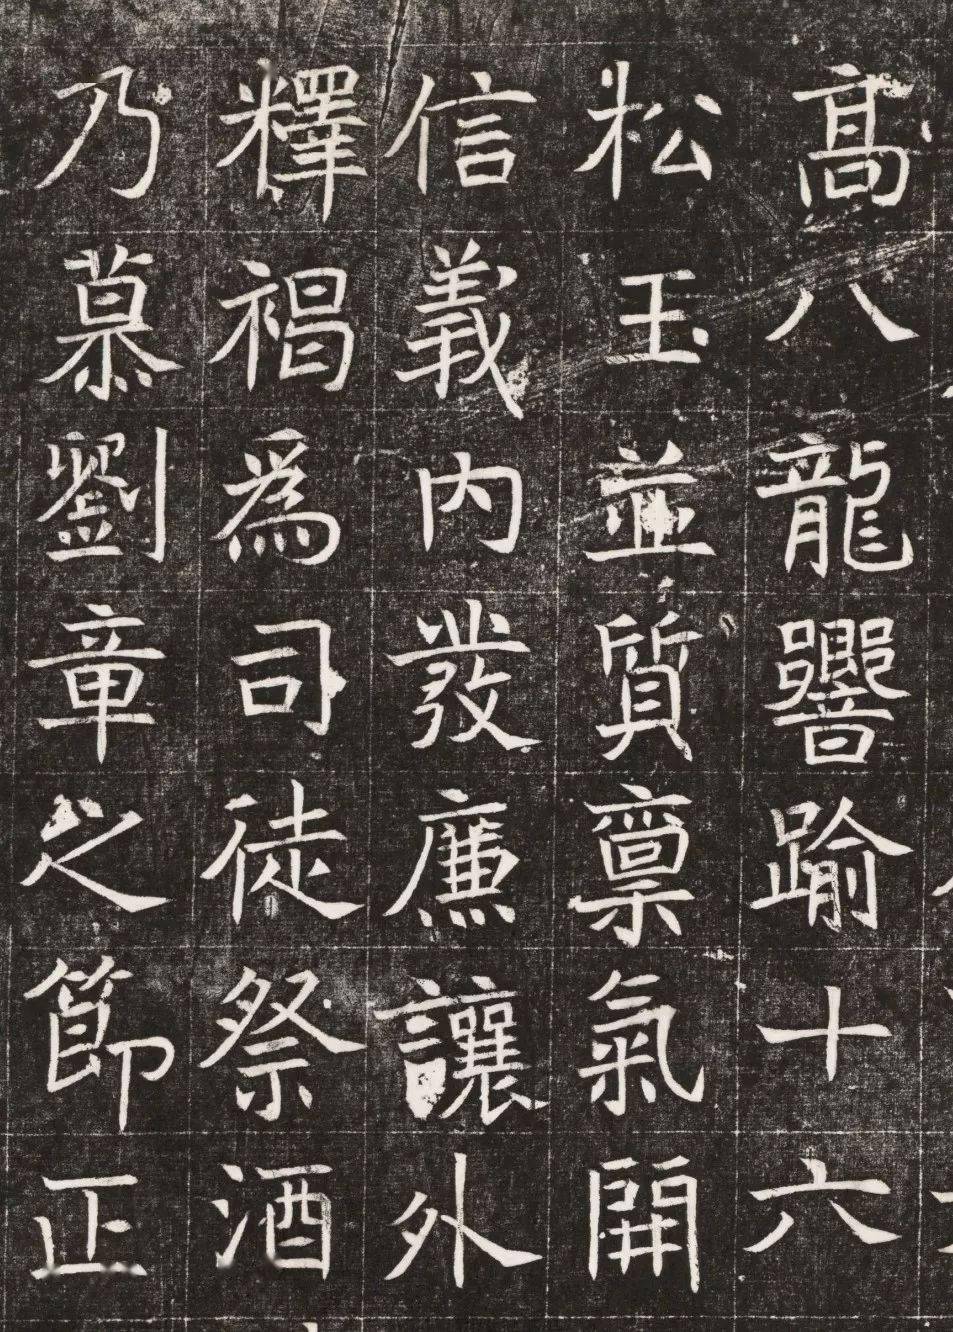 高八龍響踰十六
松玉並質稟氣開
信義內發廉讓外
釋褐為司徒祭酒
乃慕劉章之節正